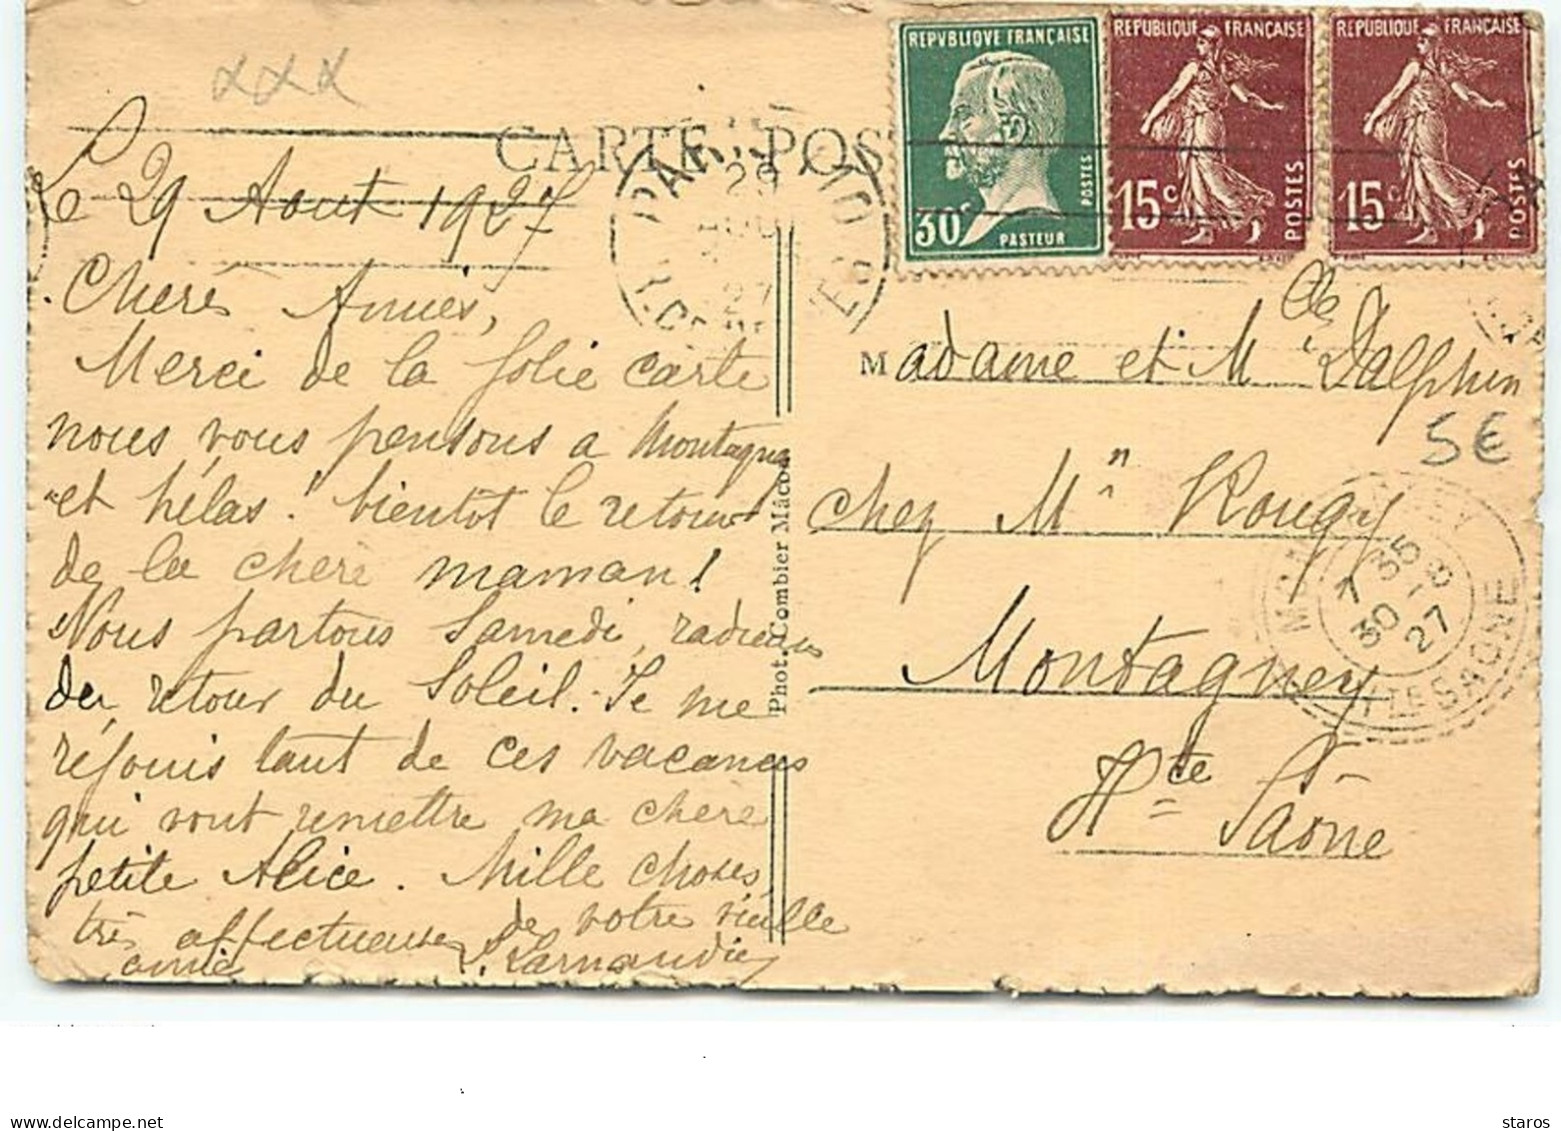 xxx
CARTE POS
Le 29 Aout 1927
Cheres Amies,
Merci de la jolie carte
nous vous pensons a Montagney
et hélas! bientot le retour
de la chère maman!
Nous partons Samedi, radieuses
du retour du Soleil. Je me
réjouis tant de ces vacances
qui vont remettre ma chère
petite Alice. Mille choses
très affectueuses de votre vieille
amie
Phot. Combier Mâcon
REPVBLIQVE FRANÇAISE
30c
PASTEUR
POSTES
REPUBLIQUE FRANÇAISE
15c
POSTES
REPUBLIQUE FRANÇAISE
15c
POSTES
PARIS
29
27
Madame et Mlle Dalphin
5€
chez Mn Rougy
Montagney
Hte Saône
MONTAGNEY
7 35
30 -8
27
HTE SAONE
delcampe.net
staros